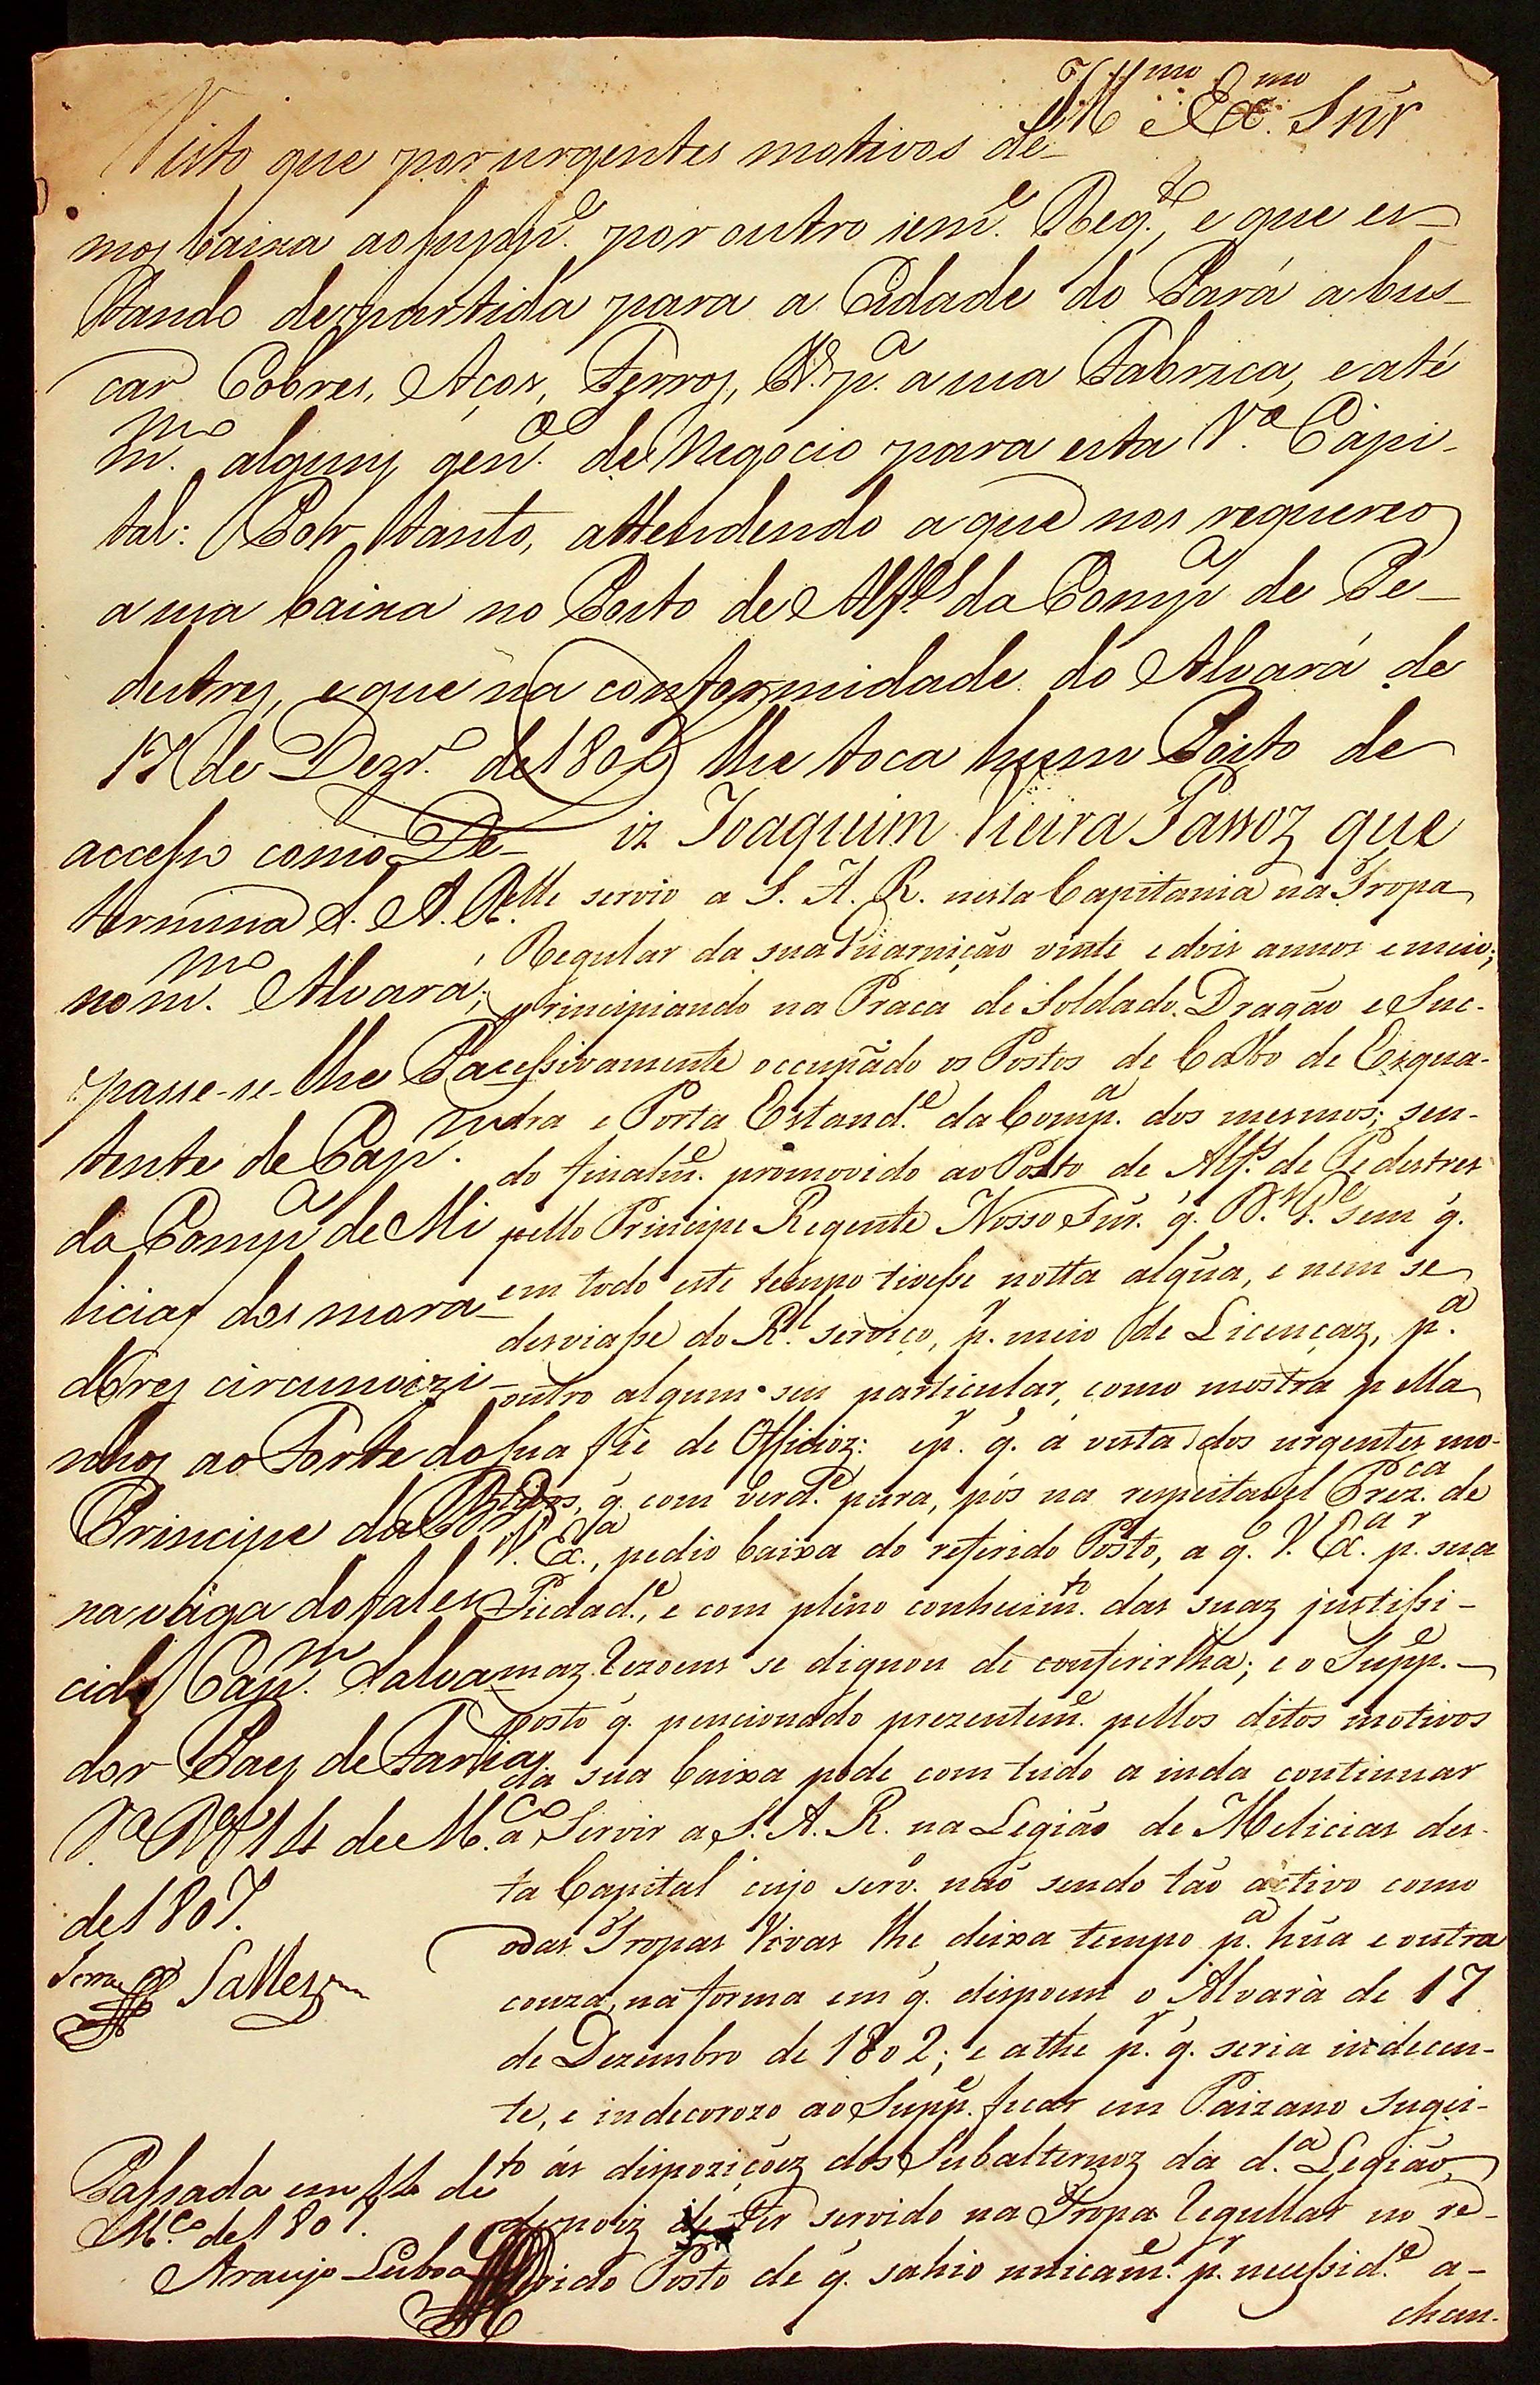 Ill.mo e Ex.mo Snr
Visto que por urgentes motivos de-
mos baixa ao supp.e por outro sem.e Reg.to, e que es-
tando de partida para a Cidade do Pará a bus-
car Cobres, Aços, Ferros, &.a p.a a sua Fabrica, e até
m.mo alguns gen.os de Negocio para esta V.a Capi-
tal: Por tanto, attendendo a que nos requereo
a sua baixa no Posto de Alf.es da Comp.a de Pe-
destres, e que na conformidade do Alvará de
17 de Dezr.o de 1802 lhe toca hum Posto de
accesso como De-
termina S. A. R.
no m.mo Alvará;
passe-se-lhe Pa-
tente de Cap.m
da Comp.a de Mi
licias dos mora-
dores circumvizi-
nhos ao Forte do
Principe da Beira
na vaga do fales
cido Cap.m Salva
dor Paes de Farias
V.a B.a 14 de M.ço
de 1807.
Salles
Passada em 14 de
M.ço de 1807.
Araujo Lisboa
iz Joaquim Vieira Passoz que
elle servio a S. A. R. nesta Capitania na Tropa
Regular da sua Guarnição vinte e dois annos e meio;
principiando na Praca de Soldado Dragão e Suc-
cessivamente occupãdo os Postos de Cabo de Esqua-
dra e Porta Estand.e da Comp.a dos mesmos; sen-
do finalm.e promovido ao Posto de Alf.es de Pedestres
pello Principe Regente Nosso Snr. q̃. D.s G.e sem q̃.
em todo este tempo tivesse notta algũa, e nem se
desviasse do R.l serviço, p.r meio de Licençaz, p.a
outro algum seu particular, como mostra pella
sua fiè de Officioz: e p.r q̃. á vista dos urgentes mo-
tivos, q̃. com verd.e pura, pós na respeitavel Prez.ca de
V. Ex.a, pedio baixa do referido Posto, a q̃. V. Ex.a p.r sua
Piedad.e, e com pleno conhecim.to das suaz justissi-
maz rezoens se dignou de conferirlha; e o Supp.e
posto q̃. pencionado prezentem.e pellos ditos motivos
da sua baixa pode com tudo a inda continuar
a Servir a S. A. R. na Legião de Melicias des-
ta Capital cujo serv.o não sendo tão activo como
o das Tropas Vivas lhe deixa tempo p.a hũa e outra
couza, na forma em q̃. dispoem o Alvarà de 17
de Dezembro de 1802; e athe p.r q̃. seria indecen-
te, e indecorozo ao Supp.e ficar em Paizano sugei-
to ás dispoziçoẽz dos Subalternoz da d.a Legião,
depoiz de ter servido na Tropa regullar no re-
ferido Posto de q̃. sahio unicam.e p.r necessid.e a-
chan-